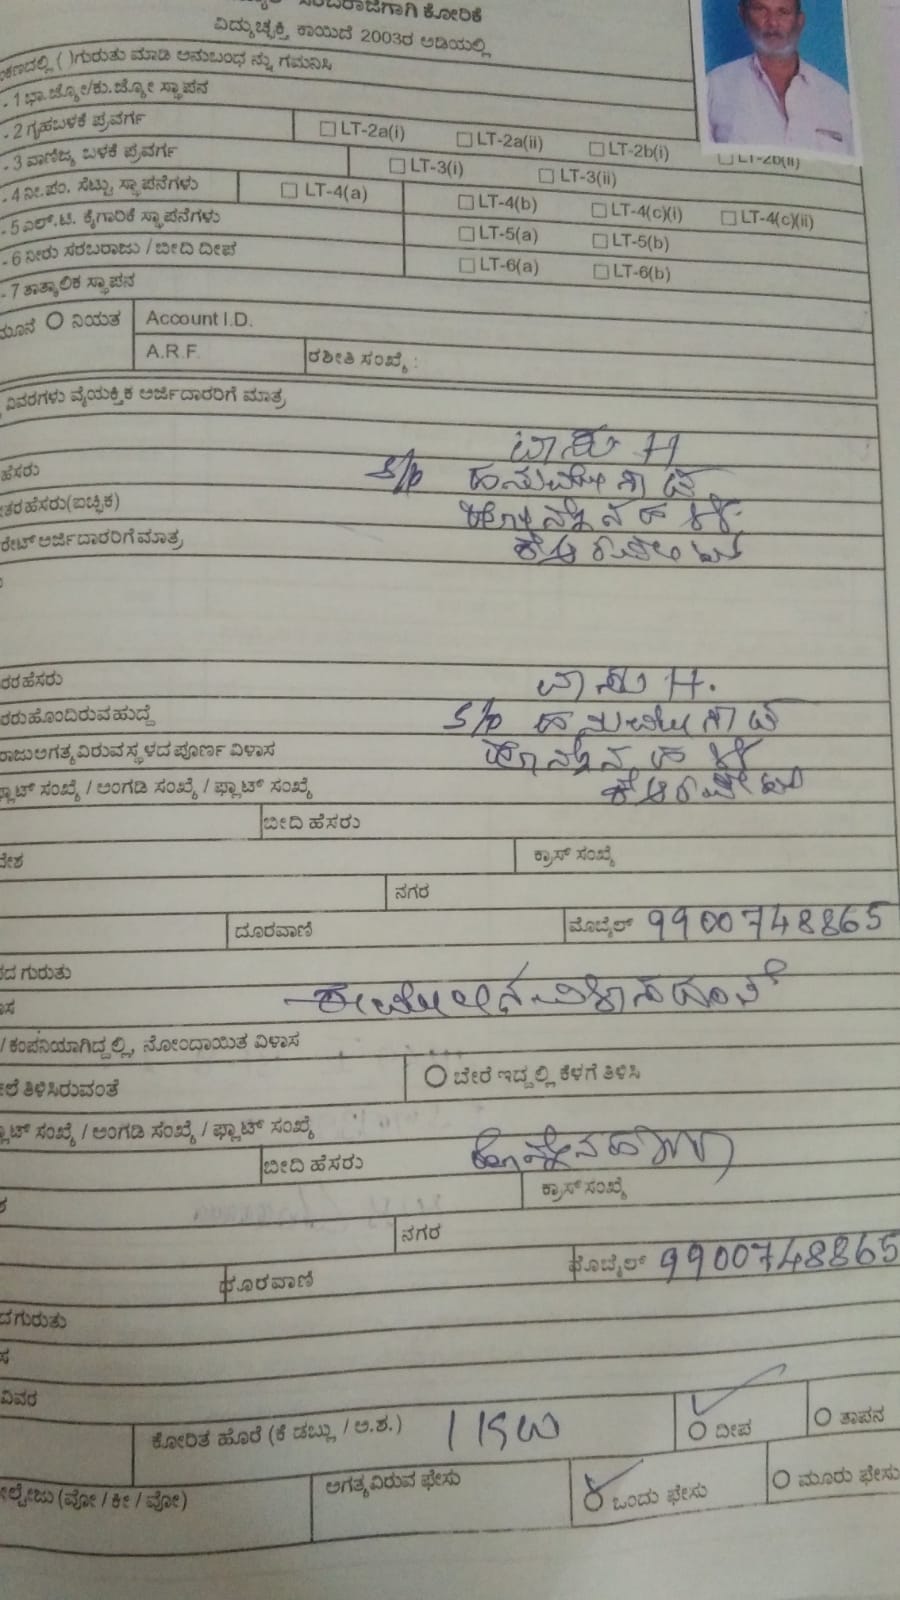 ಸರಬರಾಜಿಗಾಗಿ ಕೋರಿಕೆ
ವಿದ್ಯುಚ್ಛಕ್ತಿ ಕಾಯಿದೆ 2003ರ ಅಡಿಯಲ್ಲಿ
( )ಗುರುತು ಮಾಡಿ ಅನುಬಂಧ ನ್ನು ಗಮನಿಸಿ
- 1 ಭಾ.ಜ್ಯೋ/ಕು.ಜ್ಯೋ ಸ್ಥಾಪನ
- 2 ಗೃಹಬಳಕೆ ಪ್ರವರ್ಗ LT-2a(i) LT-2a(ii) LT-2b(i) LT-2b(ii)
- 3 ವಾಣಿಜ್ಯ ಬಳಕೆ ಪ್ರವರ್ಗ LT-3(i) LT-3(ii)
- 4 ನೀ.ಪಂ. ಸೆಟ್ಟು ಸ್ಥಾಪನೆಗಳು LT-4(a) LT-4(b) LT-4(c)(i) LT-4(c)(ii)
- 5 ಎಲ್.ಟಿ. ಕೈಗಾರಿಕೆ ಸ್ಥಾಪನೆಗಳು LT-5(a) LT-5(b)
- 6 ನೀರು ಸರಬರಾಜು / ಬೀದಿ ದೀಪ LT-6(a) LT-6(b)
- 7 ತಾತ್ಕಾಲಿಕ ಸ್ಥಾಪನ
ನಿಯತ Account I.D.
A.R.F. ರಶೀತಿ ಸಂಖ್ಯೆ :
ವಿವರಗಳು ವೈಯಕ್ತಿಕ ಅರ್ಜಿದಾರರಿಗೆ ಮಾತ್ರ
ವಾಸು H
ಹೆಸರು S/o ಹನುಮೇಗೌಡ
ಹೆಸರು(ಐಚ್ಛಿಕ) ಹೊನ್ನೇನಹಳ್ಳಿ
ಅರ್ಜಿದಾರರಿಗೆ ಮಾತ್ರ
ಹೆಸರು ವಾಸು H.
ಹೊಂದಿರುವ ಹುದ್ದೆ S/o ಹನುಮೇಗೌಡ
ಅಗತ್ಯವಿರುವ ಸ್ಥಳದ ಪೂರ್ಣ ವಿಳಾಸ ಹೊನ್ನೇನಹಳ್ಳಿ
ಪ್ಲಾಟ್ ಸಂಖ್ಯೆ / ಅಂಗಡಿ ಸಂಖ್ಯೆ / ಫ್ಲಾಟ್ ಸಂಖ್ಯೆ
ಬೀದಿ ಹೆಸರು
ಕ್ರಾಸ್ ಸಂಖ್ಯೆ
ನಗರ
ದೂರವಾಣಿ ಮೊಬೈಲ್ 9900748865
ಗುರುತು
/ ಕಂಪನಿಯಾಗಿದ್ದಲ್ಲಿ, ನೋಂದಾಯಿತ ವಿಳಾಸ
ತಿಳಿಸಿರುವಂತೆ ಬೇರೆ ಇದ್ದಲ್ಲಿ ಕೆಳಗೆ ತಿಳಿಸಿ
ಪ್ಲಾಟ್ ಸಂಖ್ಯೆ / ಅಂಗಡಿ ಸಂಖ್ಯೆ / ಫ್ಲಾಟ್ ಸಂಖ್ಯೆ
ಬೀದಿ ಹೆಸರು ಹೊನ್ನೇನಹಳ್ಳಿ
ಕ್ರಾಸ್ ಸಂಖ್ಯೆ
ನಗರ
ದೂರವಾಣಿ ಮೊಬೈಲ್ 9900748865
ಗುರುತು
ವಿವರ
ಕೋರಿತ ಹೊರೆ (ಕೆ ಡಬ್ಲ್ಯು / ಅ.ಶ.) 1 KW ದೀಪ ತಾಪನ
(ವೋ / ಕೀ / ವೋ) ಅಗತ್ಯವಿರುವ ಫೇಸು ಒಂದು ಫೇಸು ಮೂರು ಫೇಸು